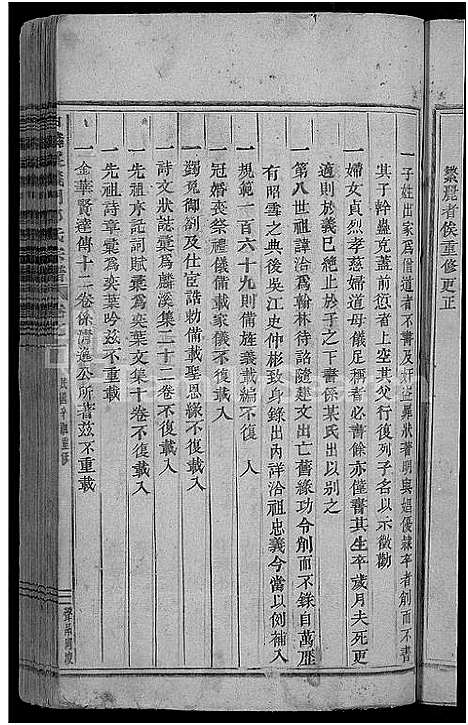 繁麗者俟重修更正
一子姓出家為僧道者不書及奸盜暴狀著明與娼優隸卒者削而不書
其子幹蠱克蓋前愆者上空其父行復列子名以示徵勸
一婦女貞烈孝慈婦道母儀足稱者必書餘亦僅書其生卒歲月夫死更
適則於義已絕止於子之下書係某氏出以別之
一第八世祖諱洽為翰林待詔隨建文出亡舊緣功令削而不錄自萬歷
有昭雪之典後吳江史仲彬致身錄出內詳洽祖忠義今當以例補入
一規範一百六十九則備旌義載編不復入
一冠婚喪祭禮儀備載家儀不復載入
一蠲免御劄及仕宦誥勅備載聖恩緣不復載入
一詩文狀誌彙為麟溪集二十二卷不復載入
一先祖序記詞賦彙為奕葉文集十卷不復載入
一先祖詩章彙為奕葉吟茲不重載
一金華賢達傳十二卷係清逸公所著茲不重載